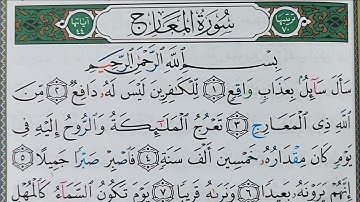 ترتيبها ٧٠ سُورَةُ المَعَارِجِ آياتها ٤٤
بِسْمِ اللَّهِ الرَّحْمَٰنِ الرَّحِيمِ
سَأَلَ سَآئِلٌ بِعَذَابٍ وَاقِعٍ ١ لِّلْكَٰفِرِينَ لَيْسَ لَهُۥ دَافِعٌ ٢ مِّنَ
اللَّهِ ذِي الْمَعَارِجِ ٣ تَعْرُجُ الْمَلَٰٓئِكَةُ وَالرُّوحُ إِلَيْهِ فِي
يَوْمٍ كَانَ مِقْدَارُهُۥ خَمْسِينَ أَلْفَ سَنَةٍ ٤ فَاصْبِرْ صَبْرًا جَمِيلًا ٥
إِنَّهُمْ يَرَوْنَهُۥ بَعِيدًا ٦ وَنَرَىٰهُ قَرِيبًا ٧ يَوْمَ تَكُونُ السَّمَآءُ كَالْمُهْلِ